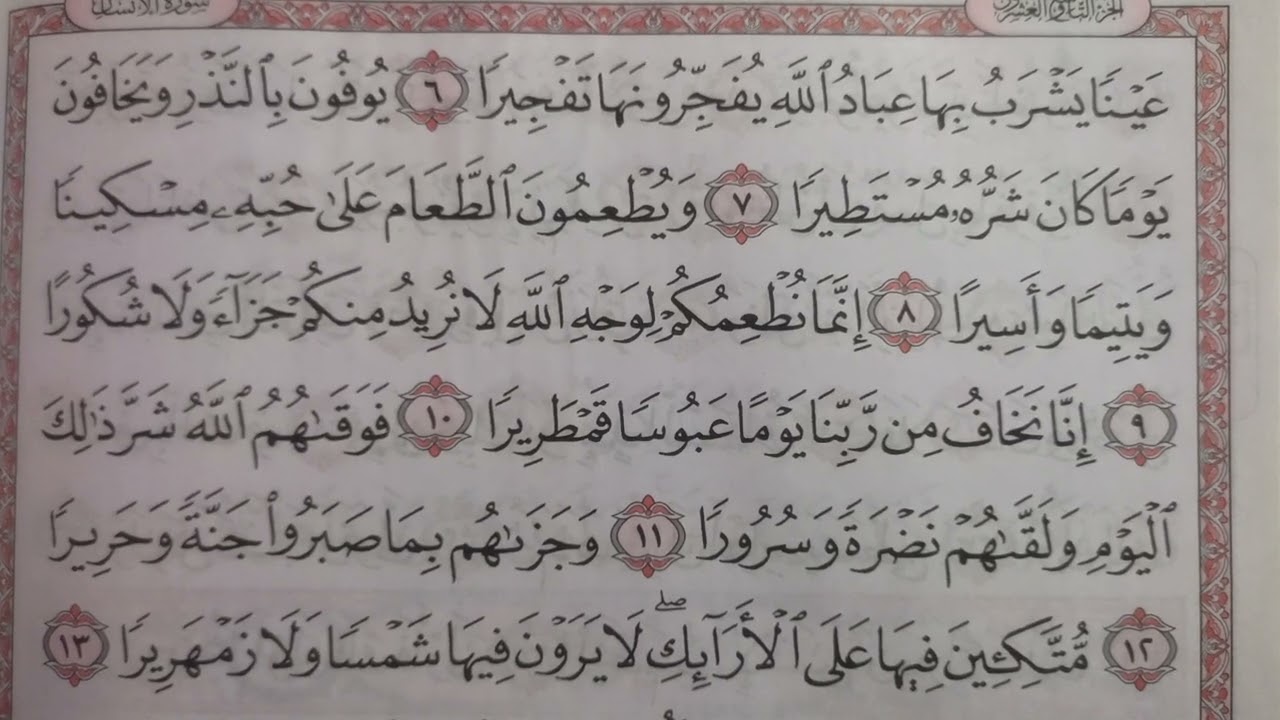 سورة الإنسان الجزء التاسع والعشرون
عَيْنٗا يَشْرَبُ بِهَا عِبَادُ ٱللَّهِ يُفَجِّرُونَهَا تَفْجِيرٗا ٦ يُوفُونَ بِٱلنَّذْرِ وَيَخَافُونَ
يَوْمٗا كَانَ شَرُّهُۥ مُسْتَطِيرٗا ٧ وَيُطْعِمُونَ ٱلطَّعَامَ عَلَىٰ حُبِّهِۦ مِسْكِينٗا
وَيَتِيمٗا وَأَسِيرًا ٨ إِنَّمَا نُطْعِمُكُمْ لِوَجْهِ ٱللَّهِ لَا نُرِيدُ مِنكُمْ جَزَآءٗ وَلَا شُكُورًا
٩ إِنَّا نَخَافُ مِن رَّبِّنَا يَوْمًا عَبُوسٗا قَمْطَرِيرٗا ١٠ فَوَقَىٰهُمُ ٱللَّهُ شَرَّ ذَٰلِكَ
ٱلْيَوْمِ وَلَقَّىٰهُمْ نَضْرَةٗ وَسُرُورٗا ١١ وَجَزَىٰهُم بِمَا صَبَرُوا۟ جَنَّةٗ وَحَرِيرٗا
١٢ مُّتَّكِـِٔينَ فِيهَا عَلَى ٱلْأَرَآئِكِۖ لَا يَرَوْنَ فِيهَا شَمْسٗا وَلَا زَمْهَرِيرٗا ١٣